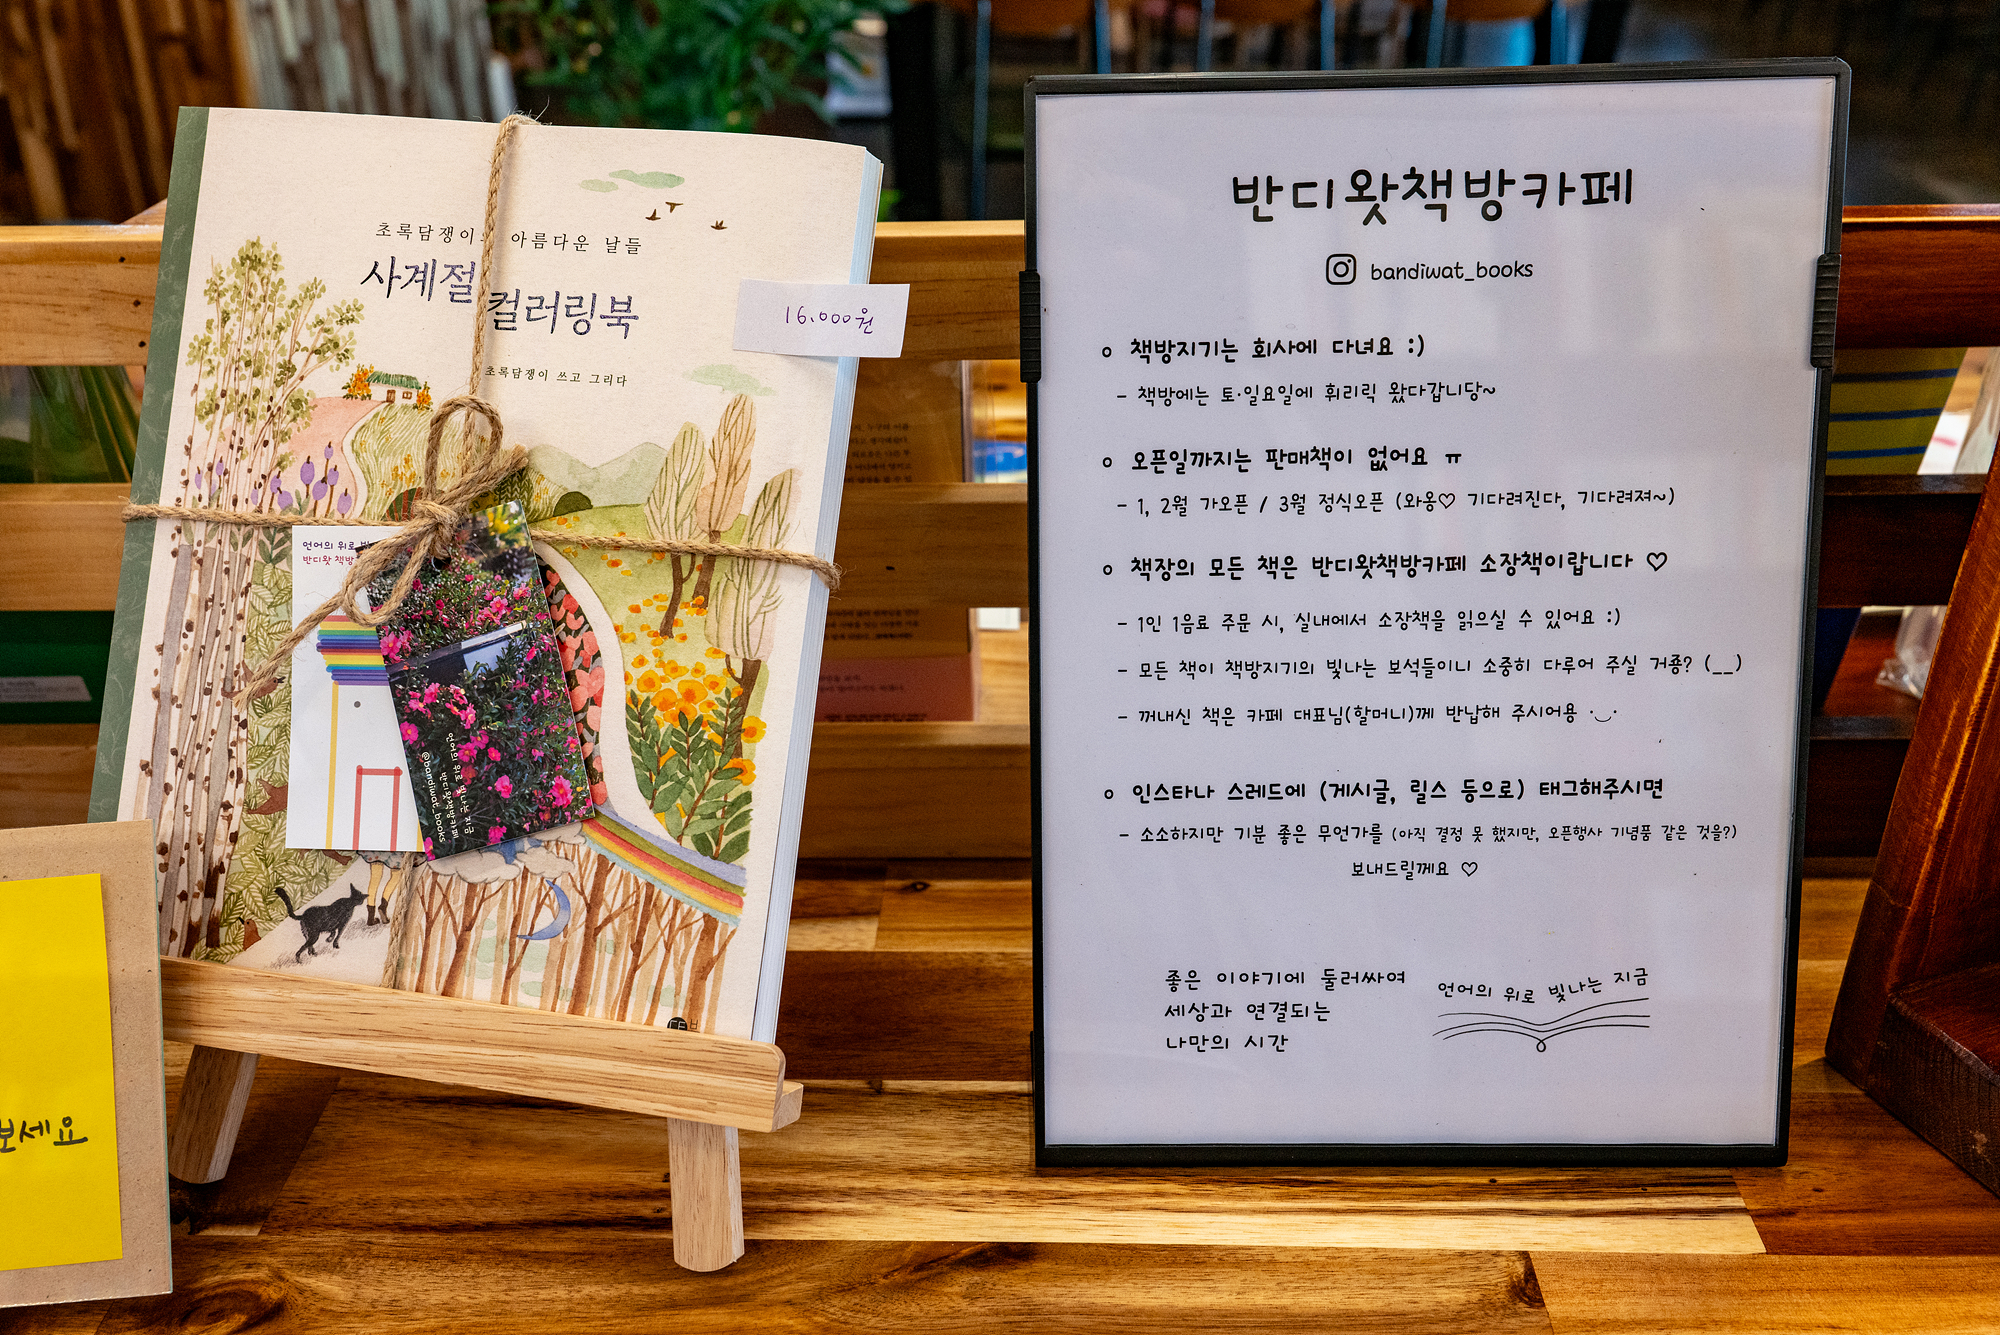 초록담쟁이 아름다운 날들
사계절
컬러링북
16.000원
초록담쟁이 쓰고 그리다
언어의 위로
반디왓 책방
언어의 위로 빛나는 지금
반디왓책방카페
@bandiwat_books
보세요
반디왓책방카페
bandiwat_books
책방지기는 회사에 다녀요 :)
- 책방에는 토·일요일에 휘리릭 왔다갑니당~
오픈일까지는 판매책이 없어요 ㅠ
- 1, 2월 가오픈 / 3월 정식오픈 (와옹♡ 기다려진다, 기다려져~)
책장의 모든 책은 반디왓책방카페 소장책이랍니다 ♡
- 1인 1음료 주문 시, 실내에서 소장책을 읽으실 수 있어요 :)
- 모든 책이 책방지기의 빛나는 보석들이니 소중히 다루어 주실 거죵? (__)
- 꺼내신 책은 카페 대표님(할머니)께 반납해 주시어용 ·‿·
인스타나 스레드에 (게시글, 릴스 등으로) 태그해주시면
- 소소하지만 기분 좋은 무언가를 (아직 결정 못 했지만, 오픈행사 기념품 같은 것을?)
보내드릴께요 ♡
좋은 이야기에 둘러싸여
세상과 연결되는
나만의 시간
언어의 위로 빛나는 지금